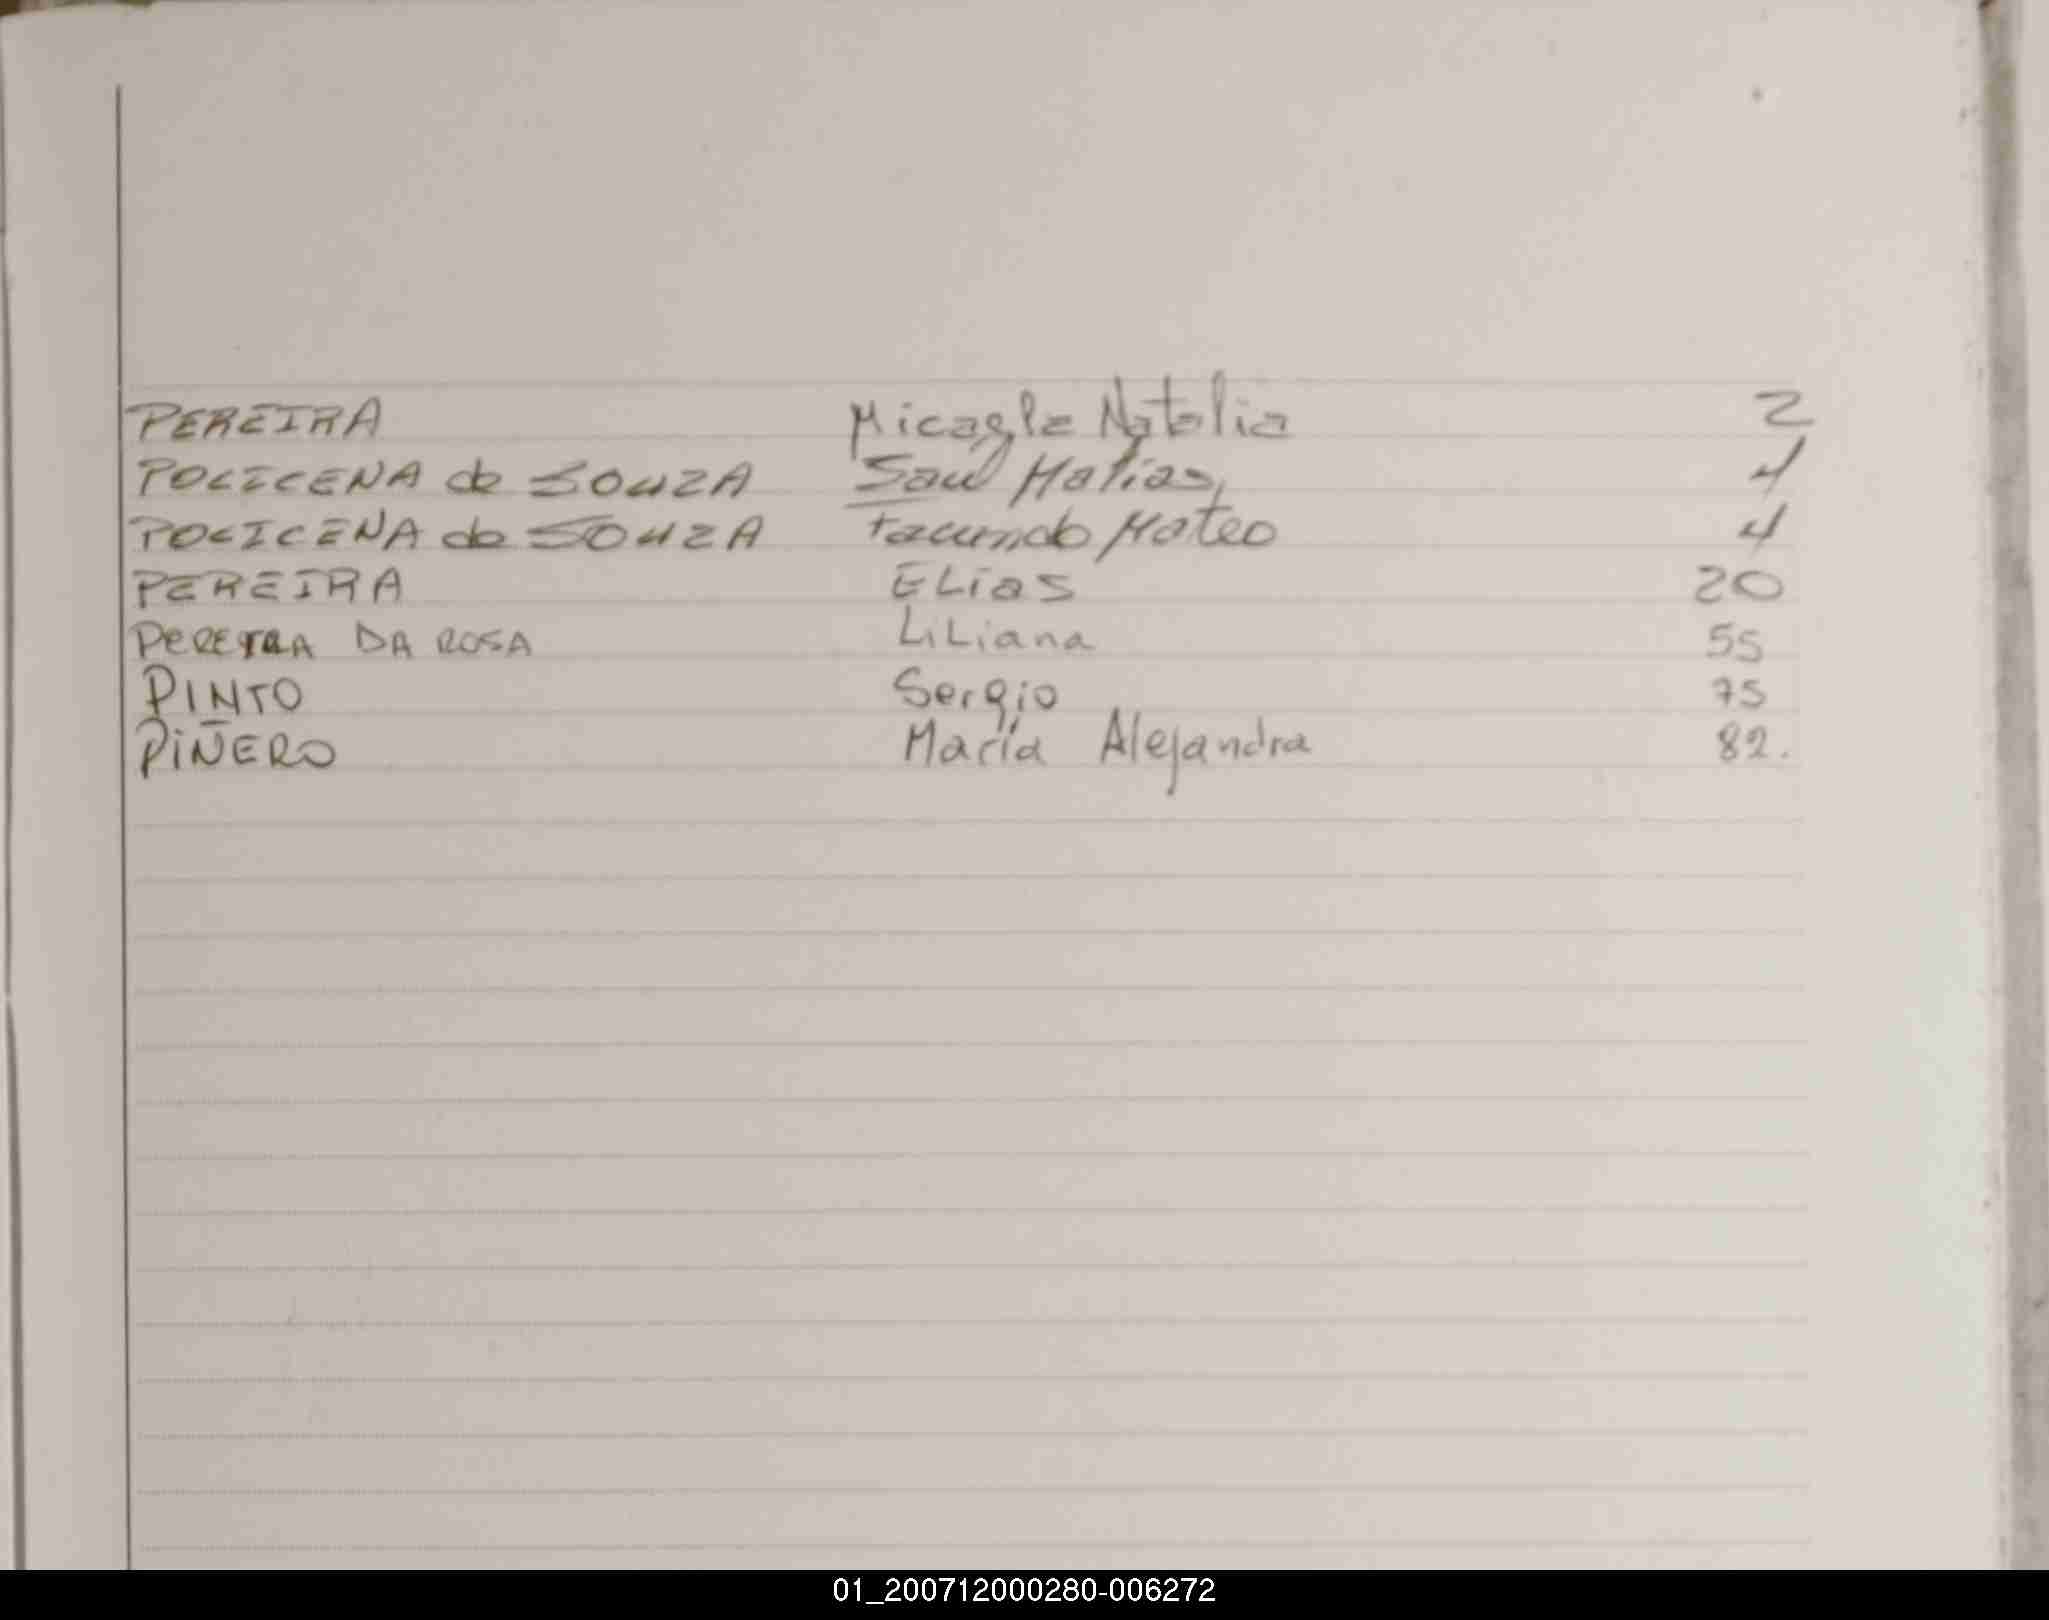 PEREIRA Micaela Natalia 2
POLICENA de SOUZA Saul Matias 4
POLICENA de SOUZA Facundo Mateo 4
PEREIRA ELias 20
PEREYRA DA ROSA LiLiana 55
PINTO Sergio 75
PIÑERO María Alejandra 82.
01_200712000280-006272